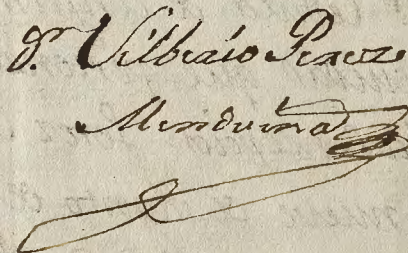 Dr. Silberio Perez
Menduina